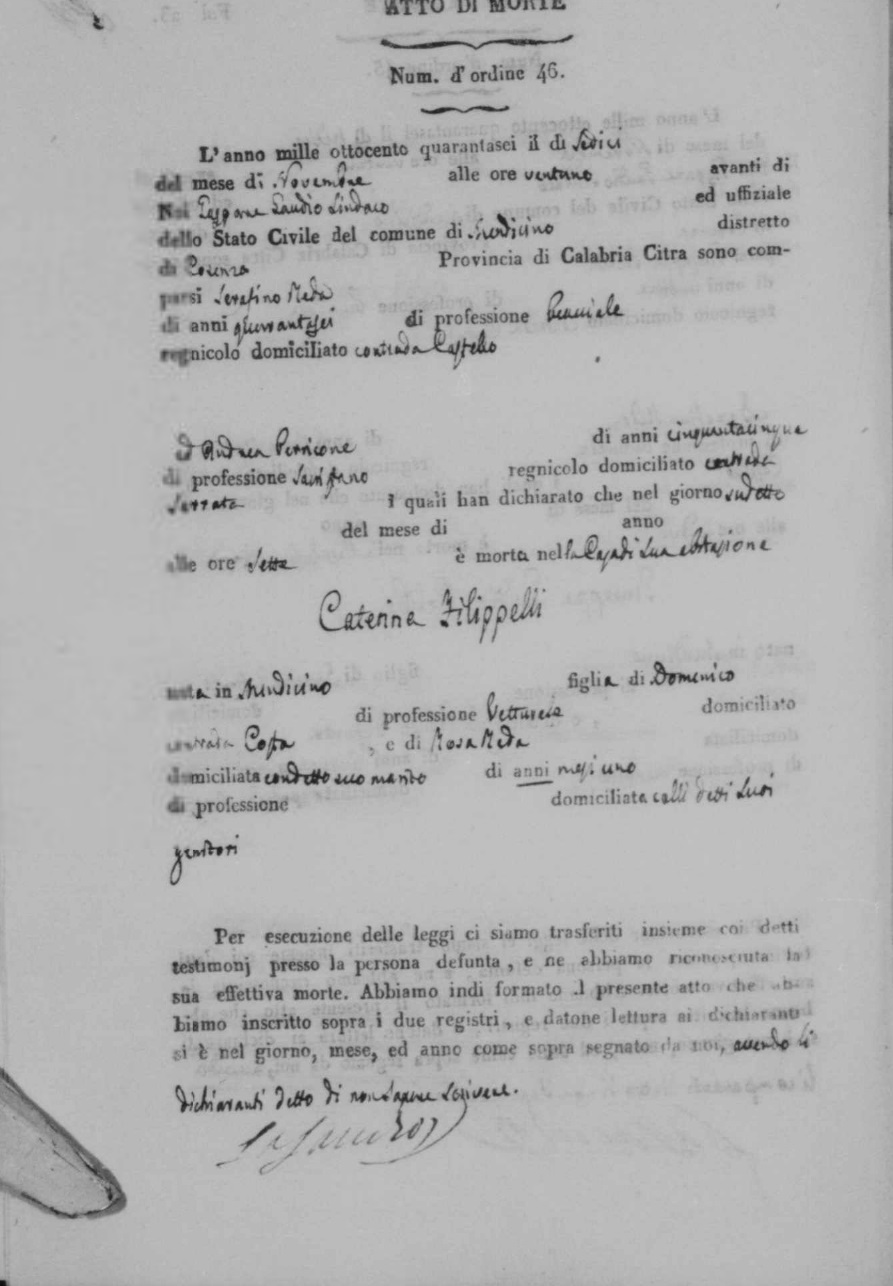 ATTO DI MORTE
Num. d'ordine 46.
L'anno mille ottocento quarantasei il di Sedici
del mese di Novembre alle ore ventuno avanti di
Noi Sindaco ed uffiziale
dello Stato Civile del comune di Mendicino distretto
di Cosenza Provincia di Calabria Citra sono com-
parsi Serafino Reda
di anni quarantasei di professione
regnicolo domiciliato contrada Castello
ed Andrea Perricone di anni cinquantacinque
di professione regnicolo domiciliato contrada
Serrata i quali han dichiarato che nel giorno sudetto
del mese di anno
alle ore Sette è morta nella Casa di Sua abitazione
Caterina Filippelli
nata in Mendicino figlia di Domenico
di professione Vetturale domiciliato
contrada Costa , e di Rosa Reda
domiciliata con detto suo marito di anni mesi uno
di professione domiciliata colli detti Suoi
genitori
Per esecuzione delle leggi ci siamo trasferiti insieme coi detti
testimonj presso la persona defunta , e ne abbiamo riconosciuta la
sua effettiva morte. Abbiamo indi formato il presente atto che ab-
biamo inscritto sopra i due registri , e datone lettura ai dichiaranti
si è nel giorno, mese, ed anno come sopra segnato da noi, avendo li
dichiaranti detto di non Sapere Scrivere.